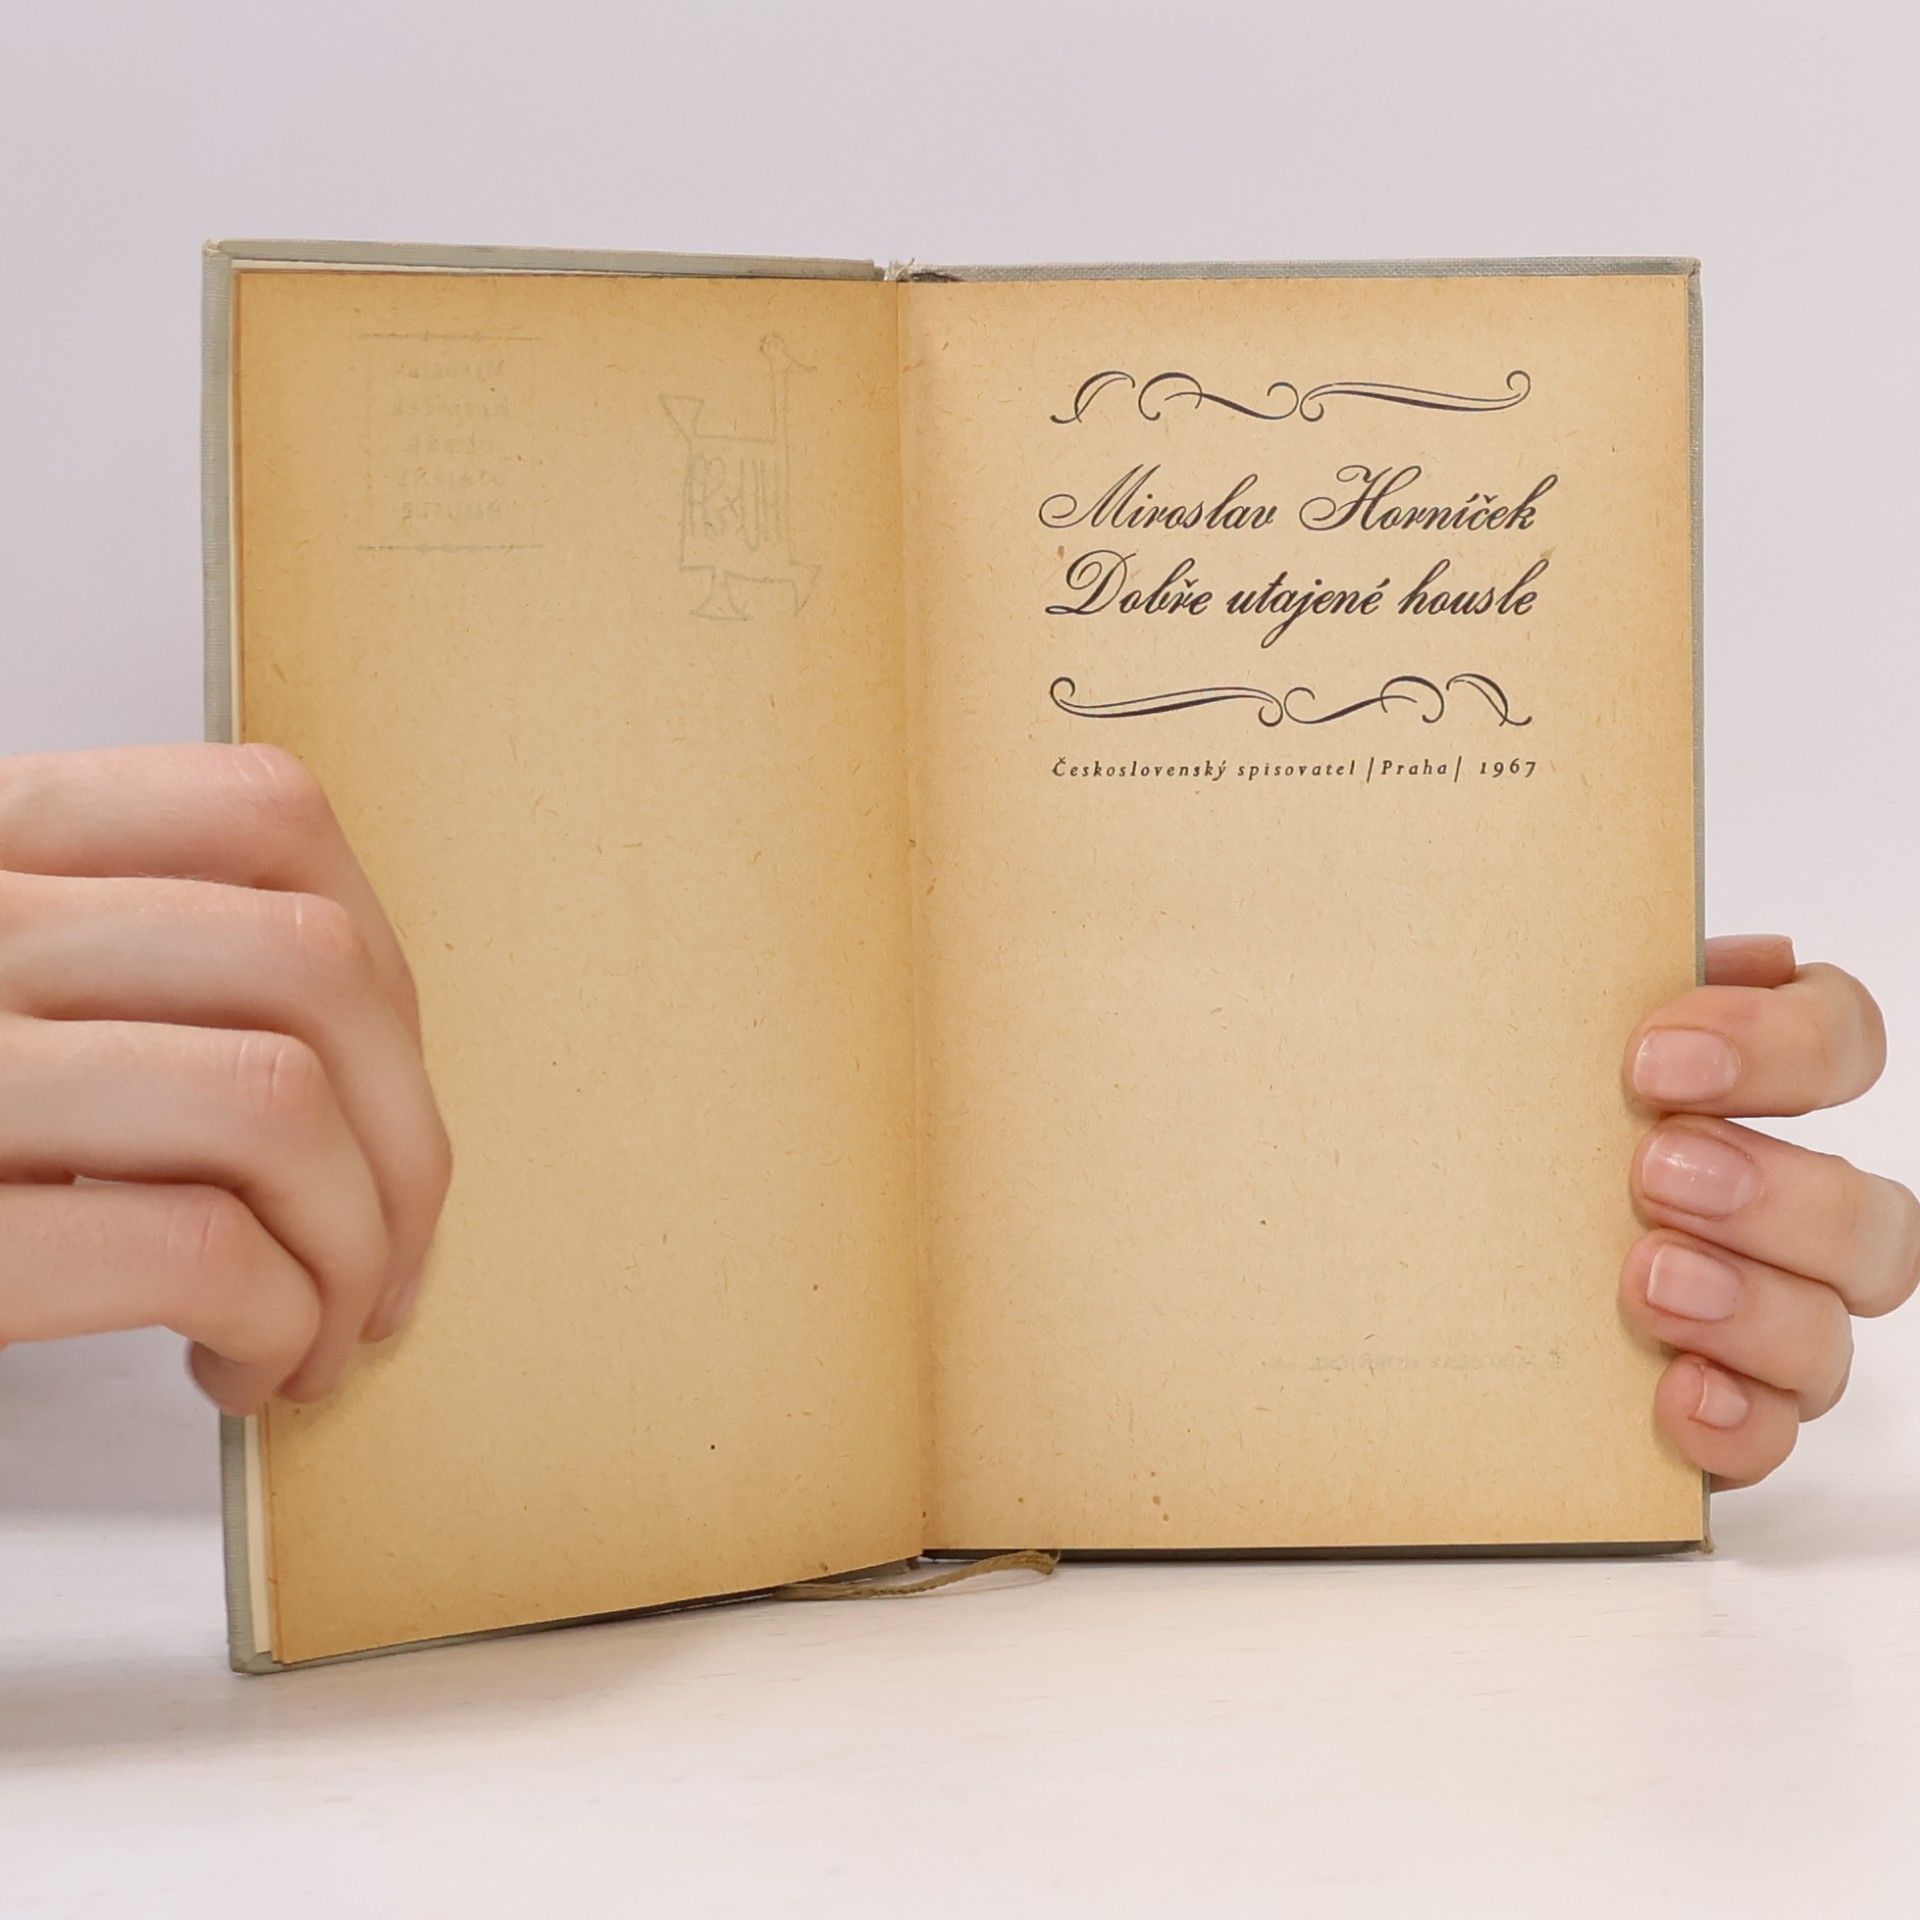 Miroslav Horníček
Dobře utajené housle
Československý spisovatel |Praha| 1967